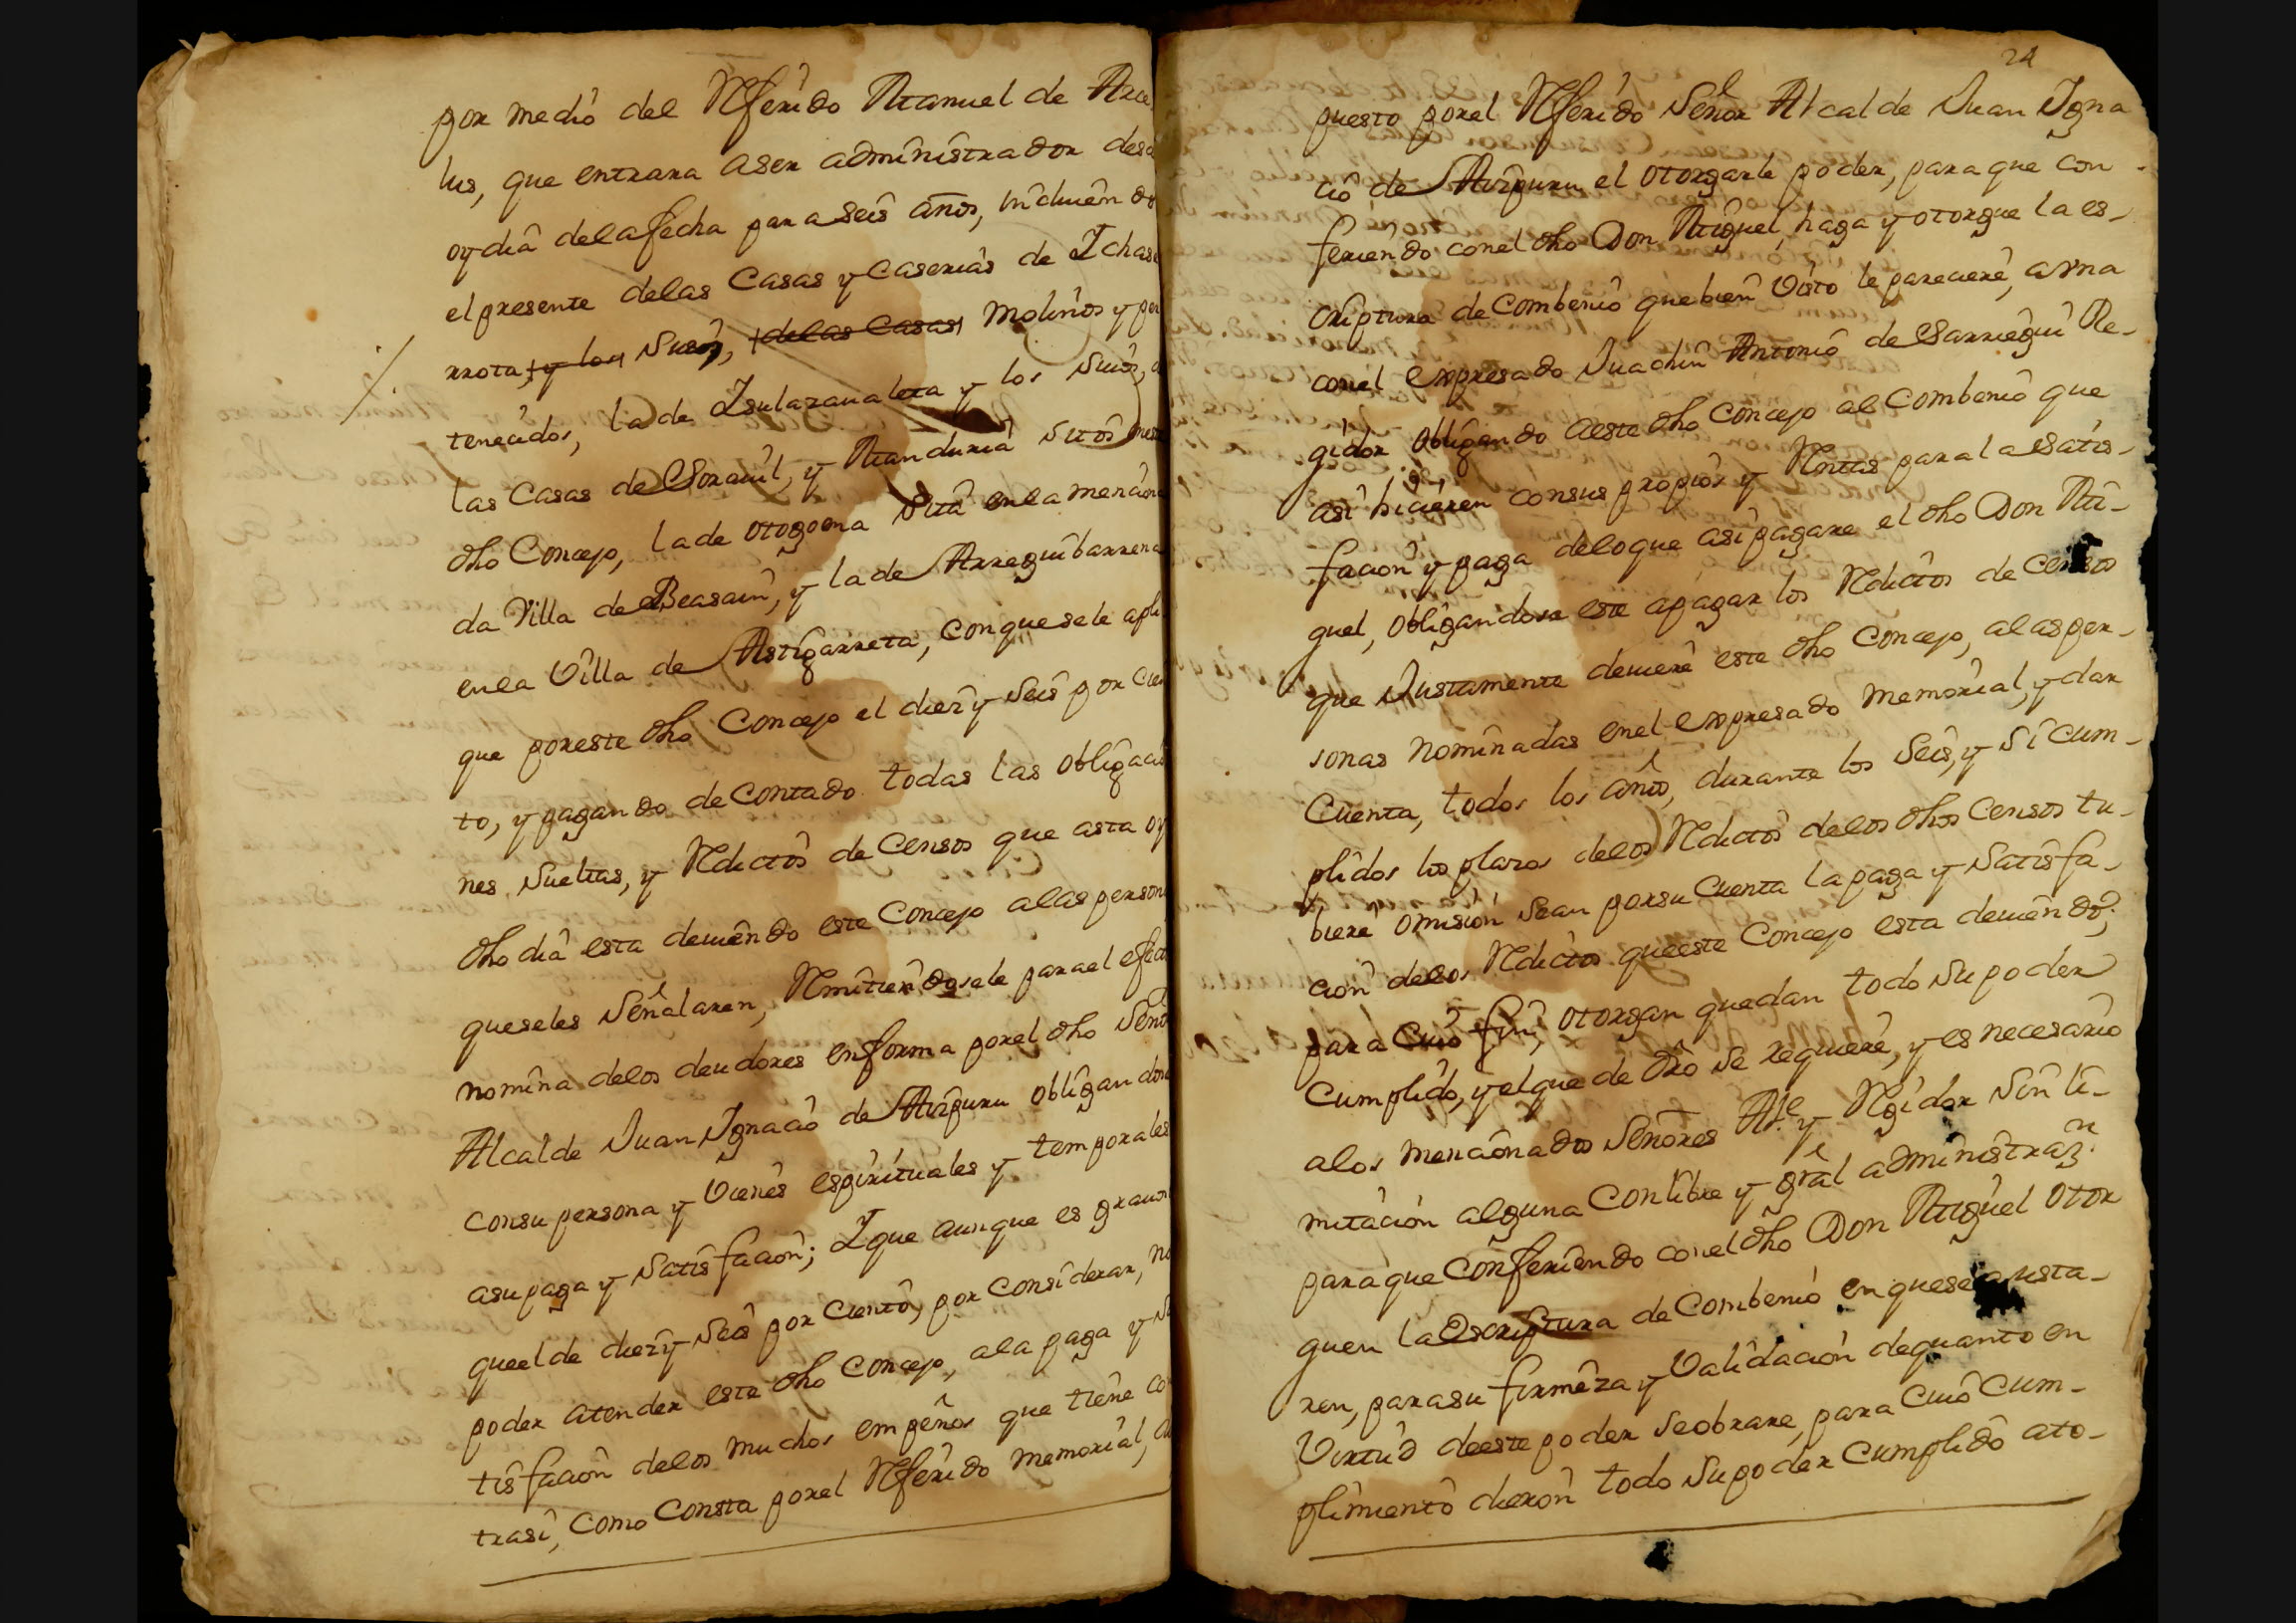 por medio del Referido Manuel de Arce
lus, que entrara aser administrador desd
oydia delafecha para seis años, incluiendo
el presente delas Casas y Caserias de Ichas
rrota, y los Suios, delas Casas Molinos y per
tenecidos, la de Isulazaualeta y los Suios,
las Casas de Corauil, y Manduria Sitos en este
dho Concejo, la de Otogoena Sita en la menciona
da Villa de Beasain, y la de Arreguibarrena
en la Villa de Astigarreta, con que se le apli
que por este dho Concejo el diez y Seis por Cien
to, y pagando de Contado todas las obligacio
nes Sueltas, y Reditos de Censos que asta oy
dho dia esta deuiendo este Concejo alas person
queseles Señalaren, Remitiendosele para el efecto
nomina delos deudores en forma por el dho Seño
Alcalde Juan Ignacio de Aizpuru obligandose
consu persona y Vienes espirituales y temporales
asu paga y Satisfacion; Y que aunque es grauoso
que el de diez y Seis por Ciento, por Considerar, no
poder atender este dho Concejo, ala paga y Sa
tisfacion delos muchos empeños que tiene co
trasi, Como Consta por el Referido memorial,
24
puesto por el Referido Señor Alcalde Juan Igna
cio de Aizpuru el otorgarle poder, para que con
feriendo con el dho Don Miguel, haga y otorgue la es-
criptura de Combenio que bien Visto le pareciere, asma
con el expresado Juachin Antonio de Sarriegui Re-
gidor obligando a este dho Concejo al Combenio que
asi hicieren consus propios y Rentas para la Satis-
facion y paga delo que asi pagare el dho Don Mi-
guel, obligandose este apagar los Reditos de Censos
que Justamente deuiere este dho Concejo, alas per-
sonas nominadas en el expresado memorial, y dar
Cuenta, todos los años, durante los Seis, y Si cum-
plidos los plazos delos Reditos delos dhos Censos tu-
biere omision Sean por su Cuenta la paga y Satisfa-
cion delos Reditos que este Concejo esta deuiendo;
para Cuio fin, otorgan que dan todo Su poder
Cumplido, y el que de dro Se requiere, y es necesario
alos mencionados Señores Alc.e y Regidor Sin li-
mitacion alguna Con libre y gral administraz.n
para que Confiriendo con el dho Don Miguel otor
guen la Escriptura de Combenio en que se ajusta-
ren, para su firmeza y Validacion de quanto en
Virtud de este poder Se obrare, para Cuio Cum-
plimiento dieron todo Su poder Cumplido ato-